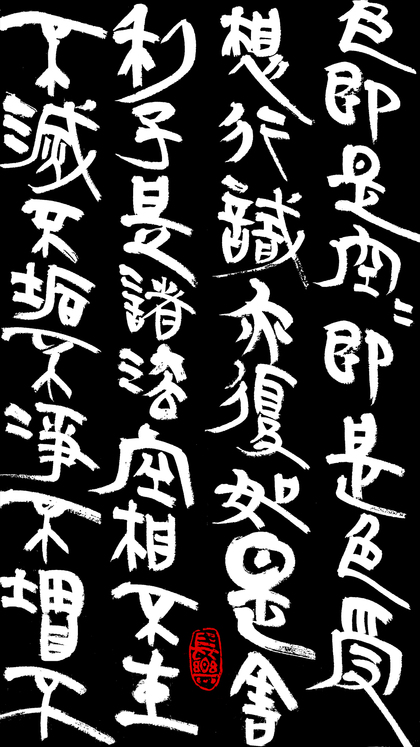 色即是空〻即是色受
想行識亦復如是舍
利子是諸法空相不生
不滅不垢不淨不增不